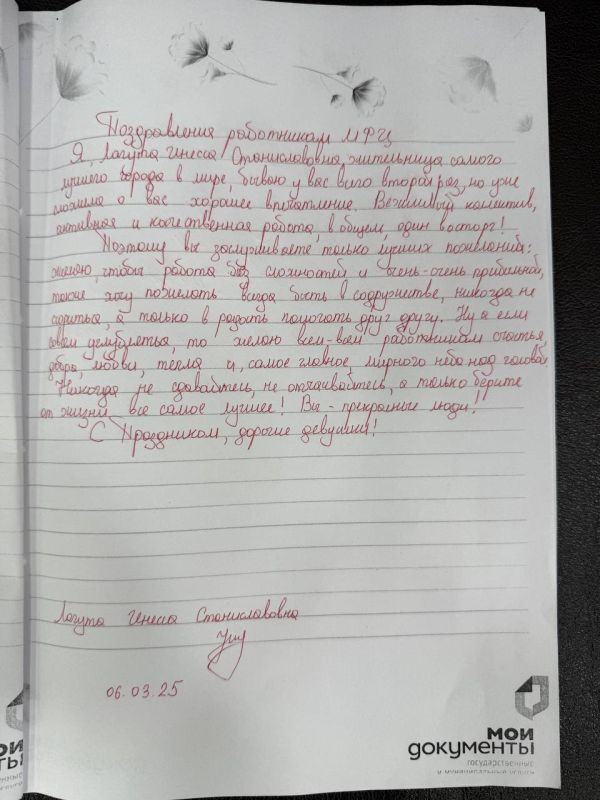 Поздравления работникам МФЦ
Я, Лагута Инесса Станиславовна, жительница самого
лучшего города в мире, бываю у вас всего второй раз, но уже
сложила о вас хорошее впечатление. Вежливый коллектив,
активная и качественная работа, в общем, один восторг!
Поэтому вы заслуживаете только лучших пожеланий:
желаю, чтобы работа без сложностей и очень-очень прибыльной,
также хочу пожелать всегда быть в содружестве, никогда не
сердиться, а только в радость помогать друг другу. Ну а если
совсем углубляться, то желаю всем-всем работникам счастья,
добра, любви, тепла и, самое главное, мирного неба над головой!
Никогда не сдавайтесь, не отчаивайтесь, а только берите
от жизни все самое лучшее! Вы - прекрасные люди!
С Праздником, дорогие девушки!
Лагута Инесса Станиславовна
06.03.25
мои
документы
государственные
и муниципальные услуги
МОИ
ТЫ